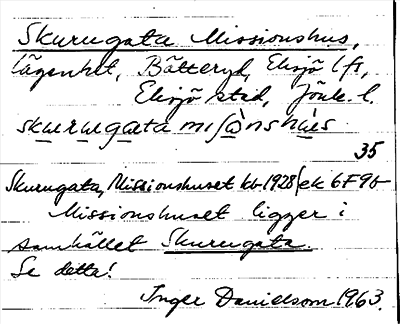 Skurugata Missionshus,
lägenhet, Bätteryd, Eksjö lfs,
Eksjö stad, Jönk. l.
skurugata miʃònshùs
35
Skurugata, Missionshuset kb 1928/ek 6F9b
Missionshuset ligger i
samhället Skurugata.
Se detta!
Inger Danielsson 1963.